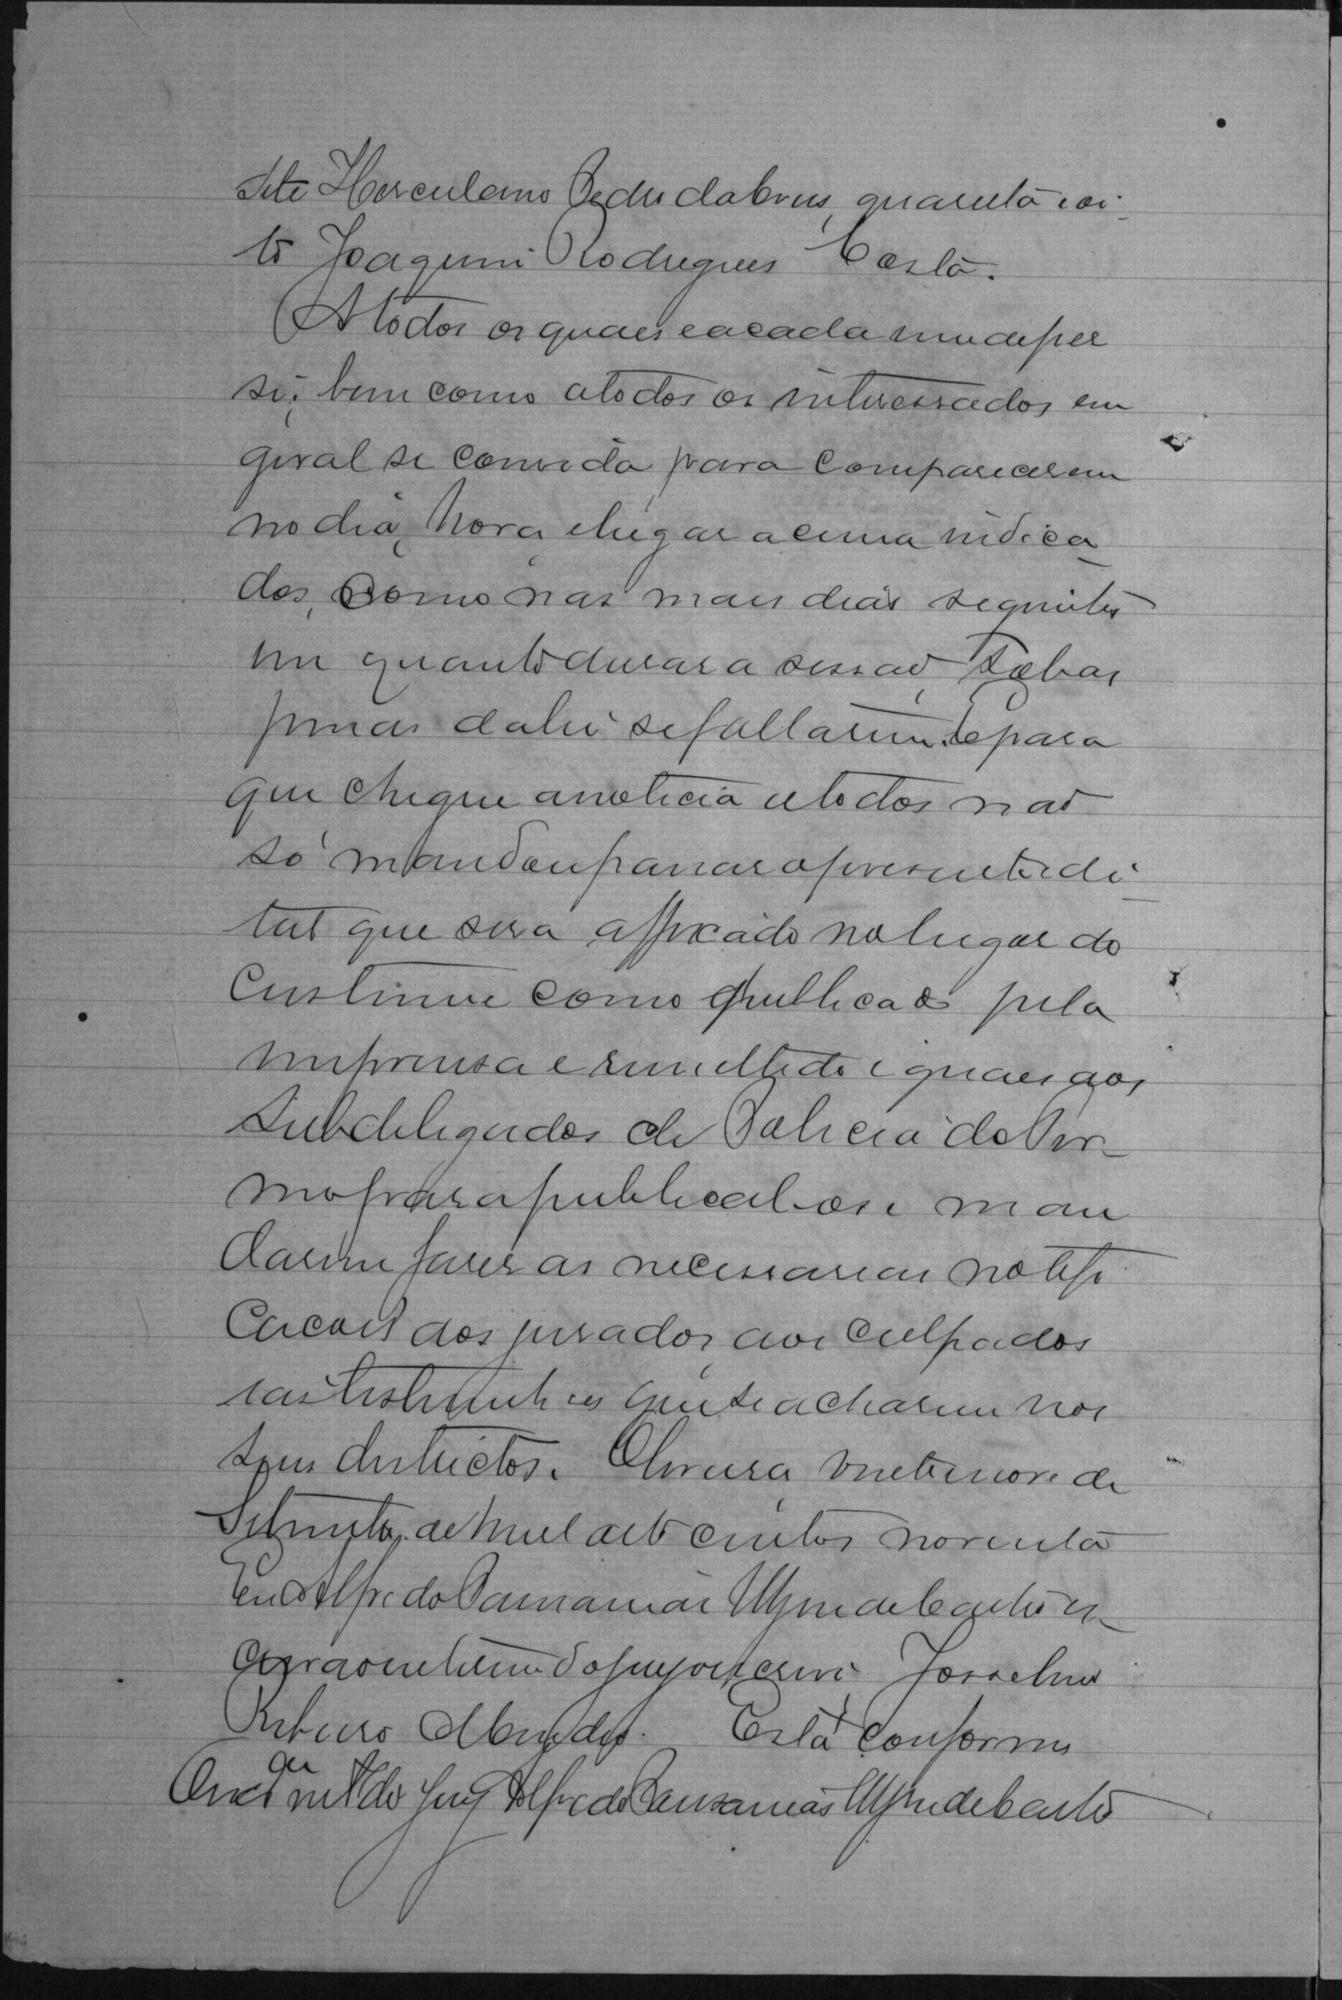 sete Herculano Pedro da Cruz, quarenta e oi-
to Joaquim Rodrigues Costa.
A todos os quaes e a cada um de per
si, bem como a todos os interessados em
geral se convida para comparecerem
no dia, hora e lugar acima indica
dos, como nas mais dias seguintes
em quanto durar a sessaõ, sob as
penas da lei se faltarem. E para
que chegue a noticia a todos naõ
só mandou passar o presente edi-
tal que sera affixado no lugar do
custume como publicado pela
imprensa e remettido iguaes aos
subdelegados de Policia do Ter-
mo para publical-os e man
darem faser as necessarias notifi
cacoes aos jurados, aos culpados
e as testemunhas que se acharem nos
seus districtos. Oliveira vinte nove de
Setembro de mil oito centos noventa
Eu Alfredo Pausanias de Castro es-
crivaõ interino do jury o escrevi
Ribeiro Está conforme
O int.º do jury Alfredo Pausanias de Castro